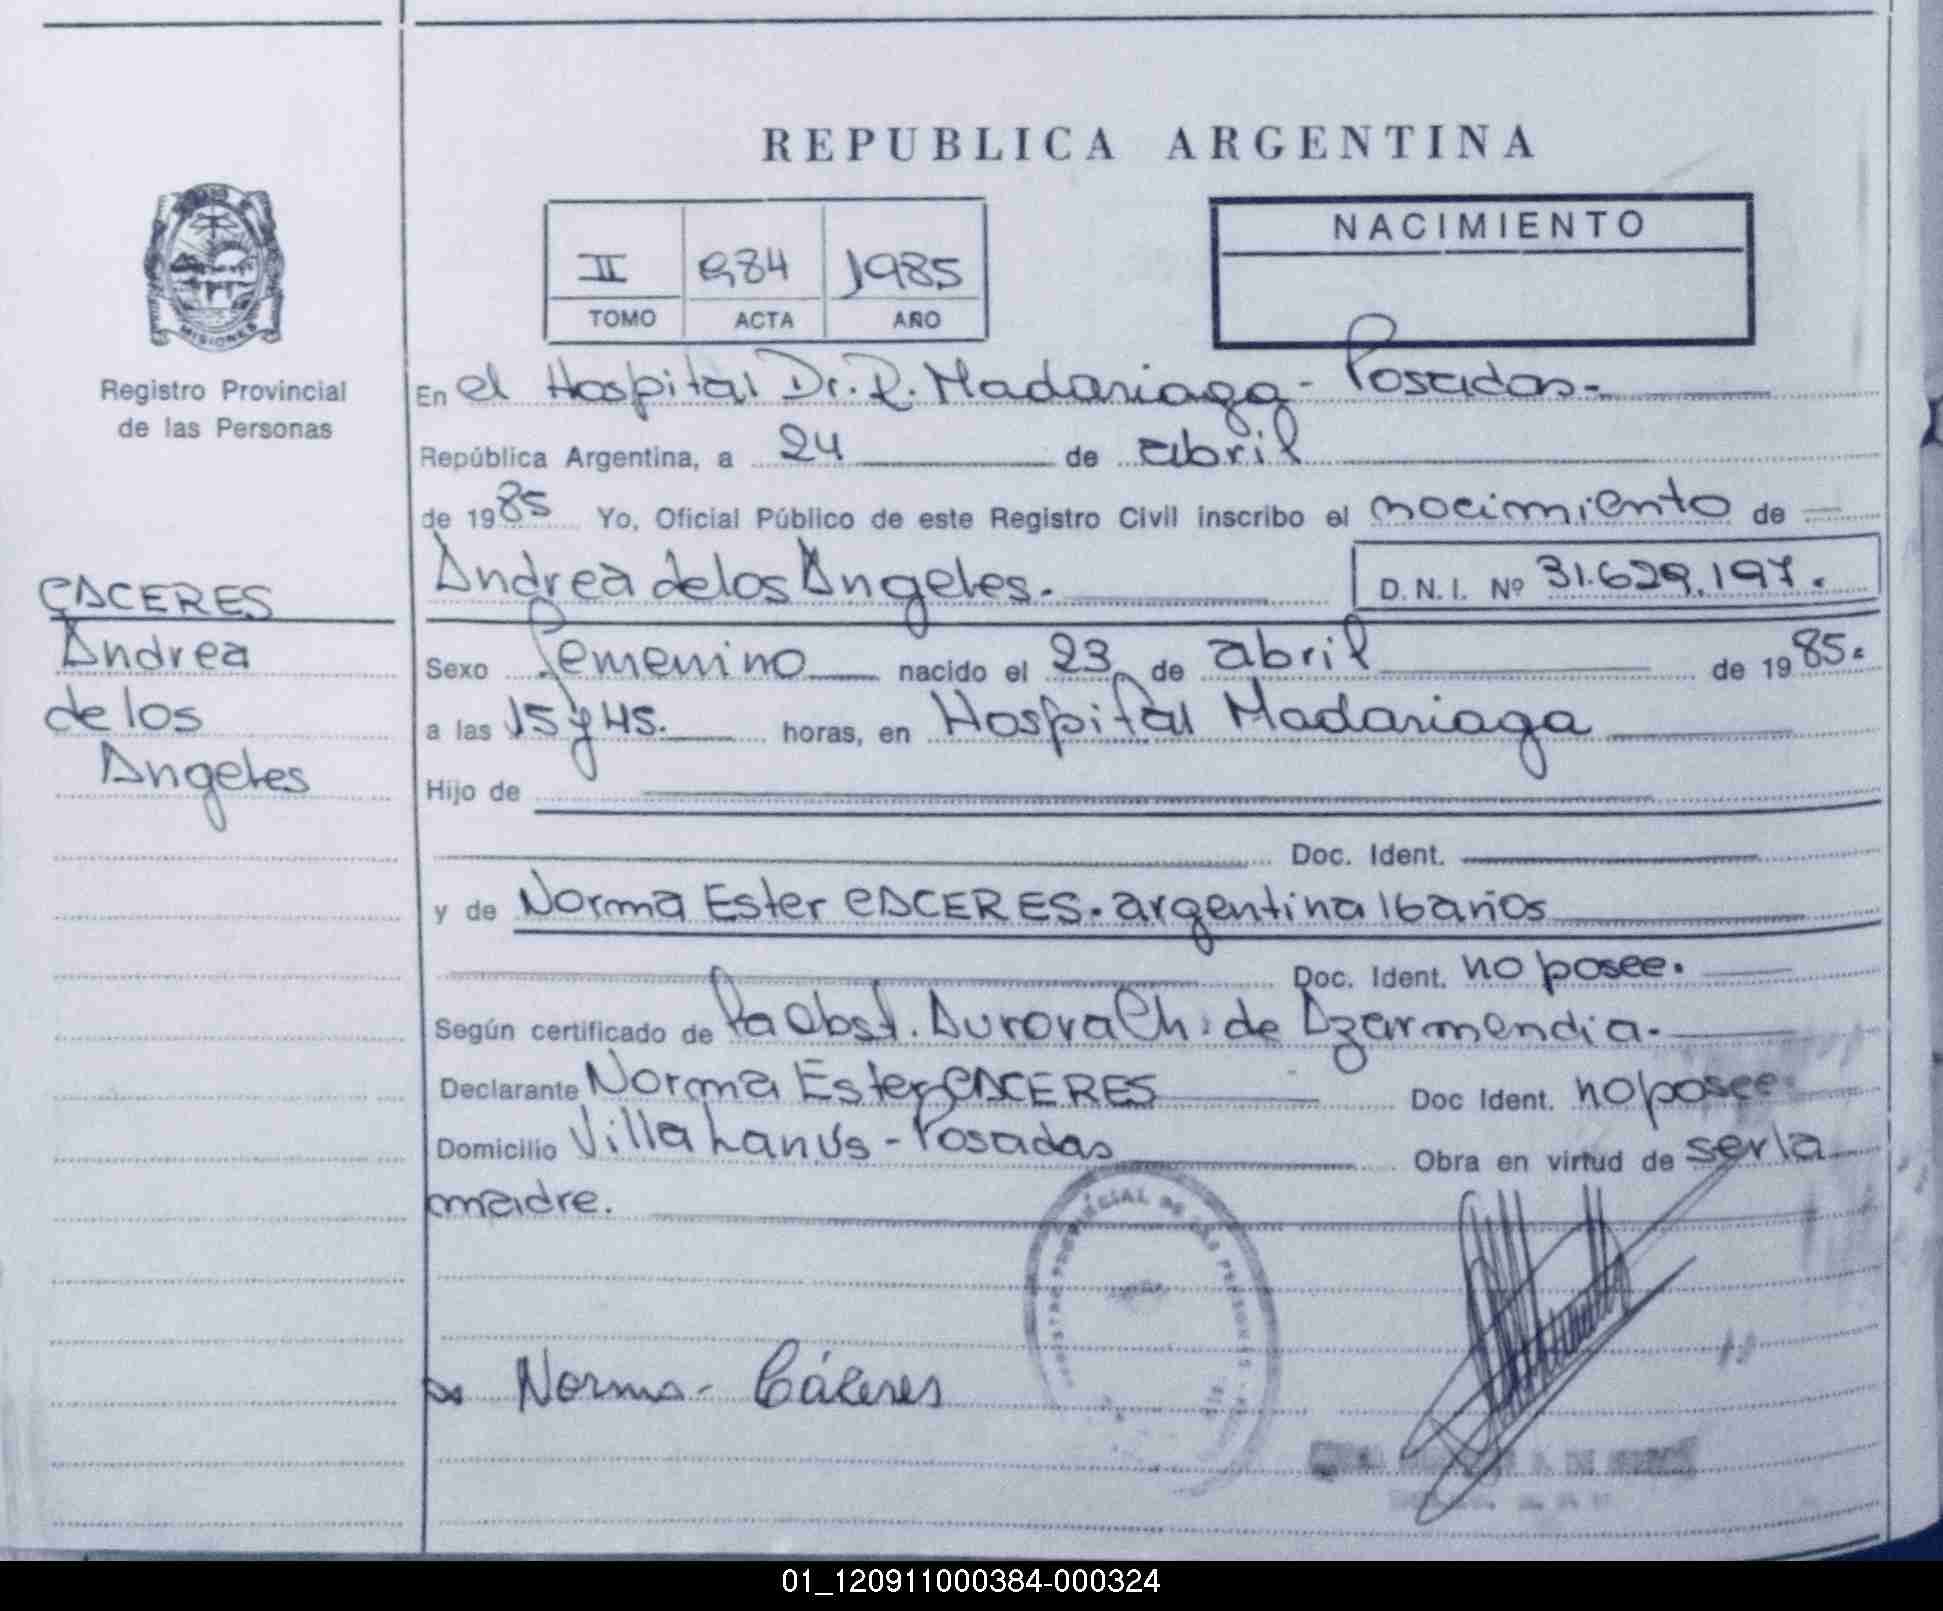 REPUBLICA ARGENTINA
NACIMIENTO
II 984 1985
TOMO ACTA AÑO
MISIONES
Registro Provincial
de las Personas
CACERES
Andrea
de los
Angeles
En el Hospital Dr. R. Madariaga - Posadas.
República Argentina, a 24 de abril
de 1985 Yo, Oficial Público de este Registro Civil inscribo el nacimiento de
Andrea de los Angeles. D.N.I. Nº 31.629.197.
Sexo femenino nacido el 23 de abril de 1985.
a las 15 y 45. horas, en Hospital Madariaga
Hijo de
Doc. Ident.
y de Norma Ester CACERES. argentina 16 años
Doc. Ident. no posee.
Según certificado de la Obst. Aurora Ch. de Azarmendia.
Declarante Norma Ester CACERES Doc Ident. no posee
Domicilio Villa Lanús - Posadas Obra en virtud de ser la
madre.
REGISTRO PROVINCIAL DE LAS PERSONAS
Norma - Cáceres
01_120911000384-000324